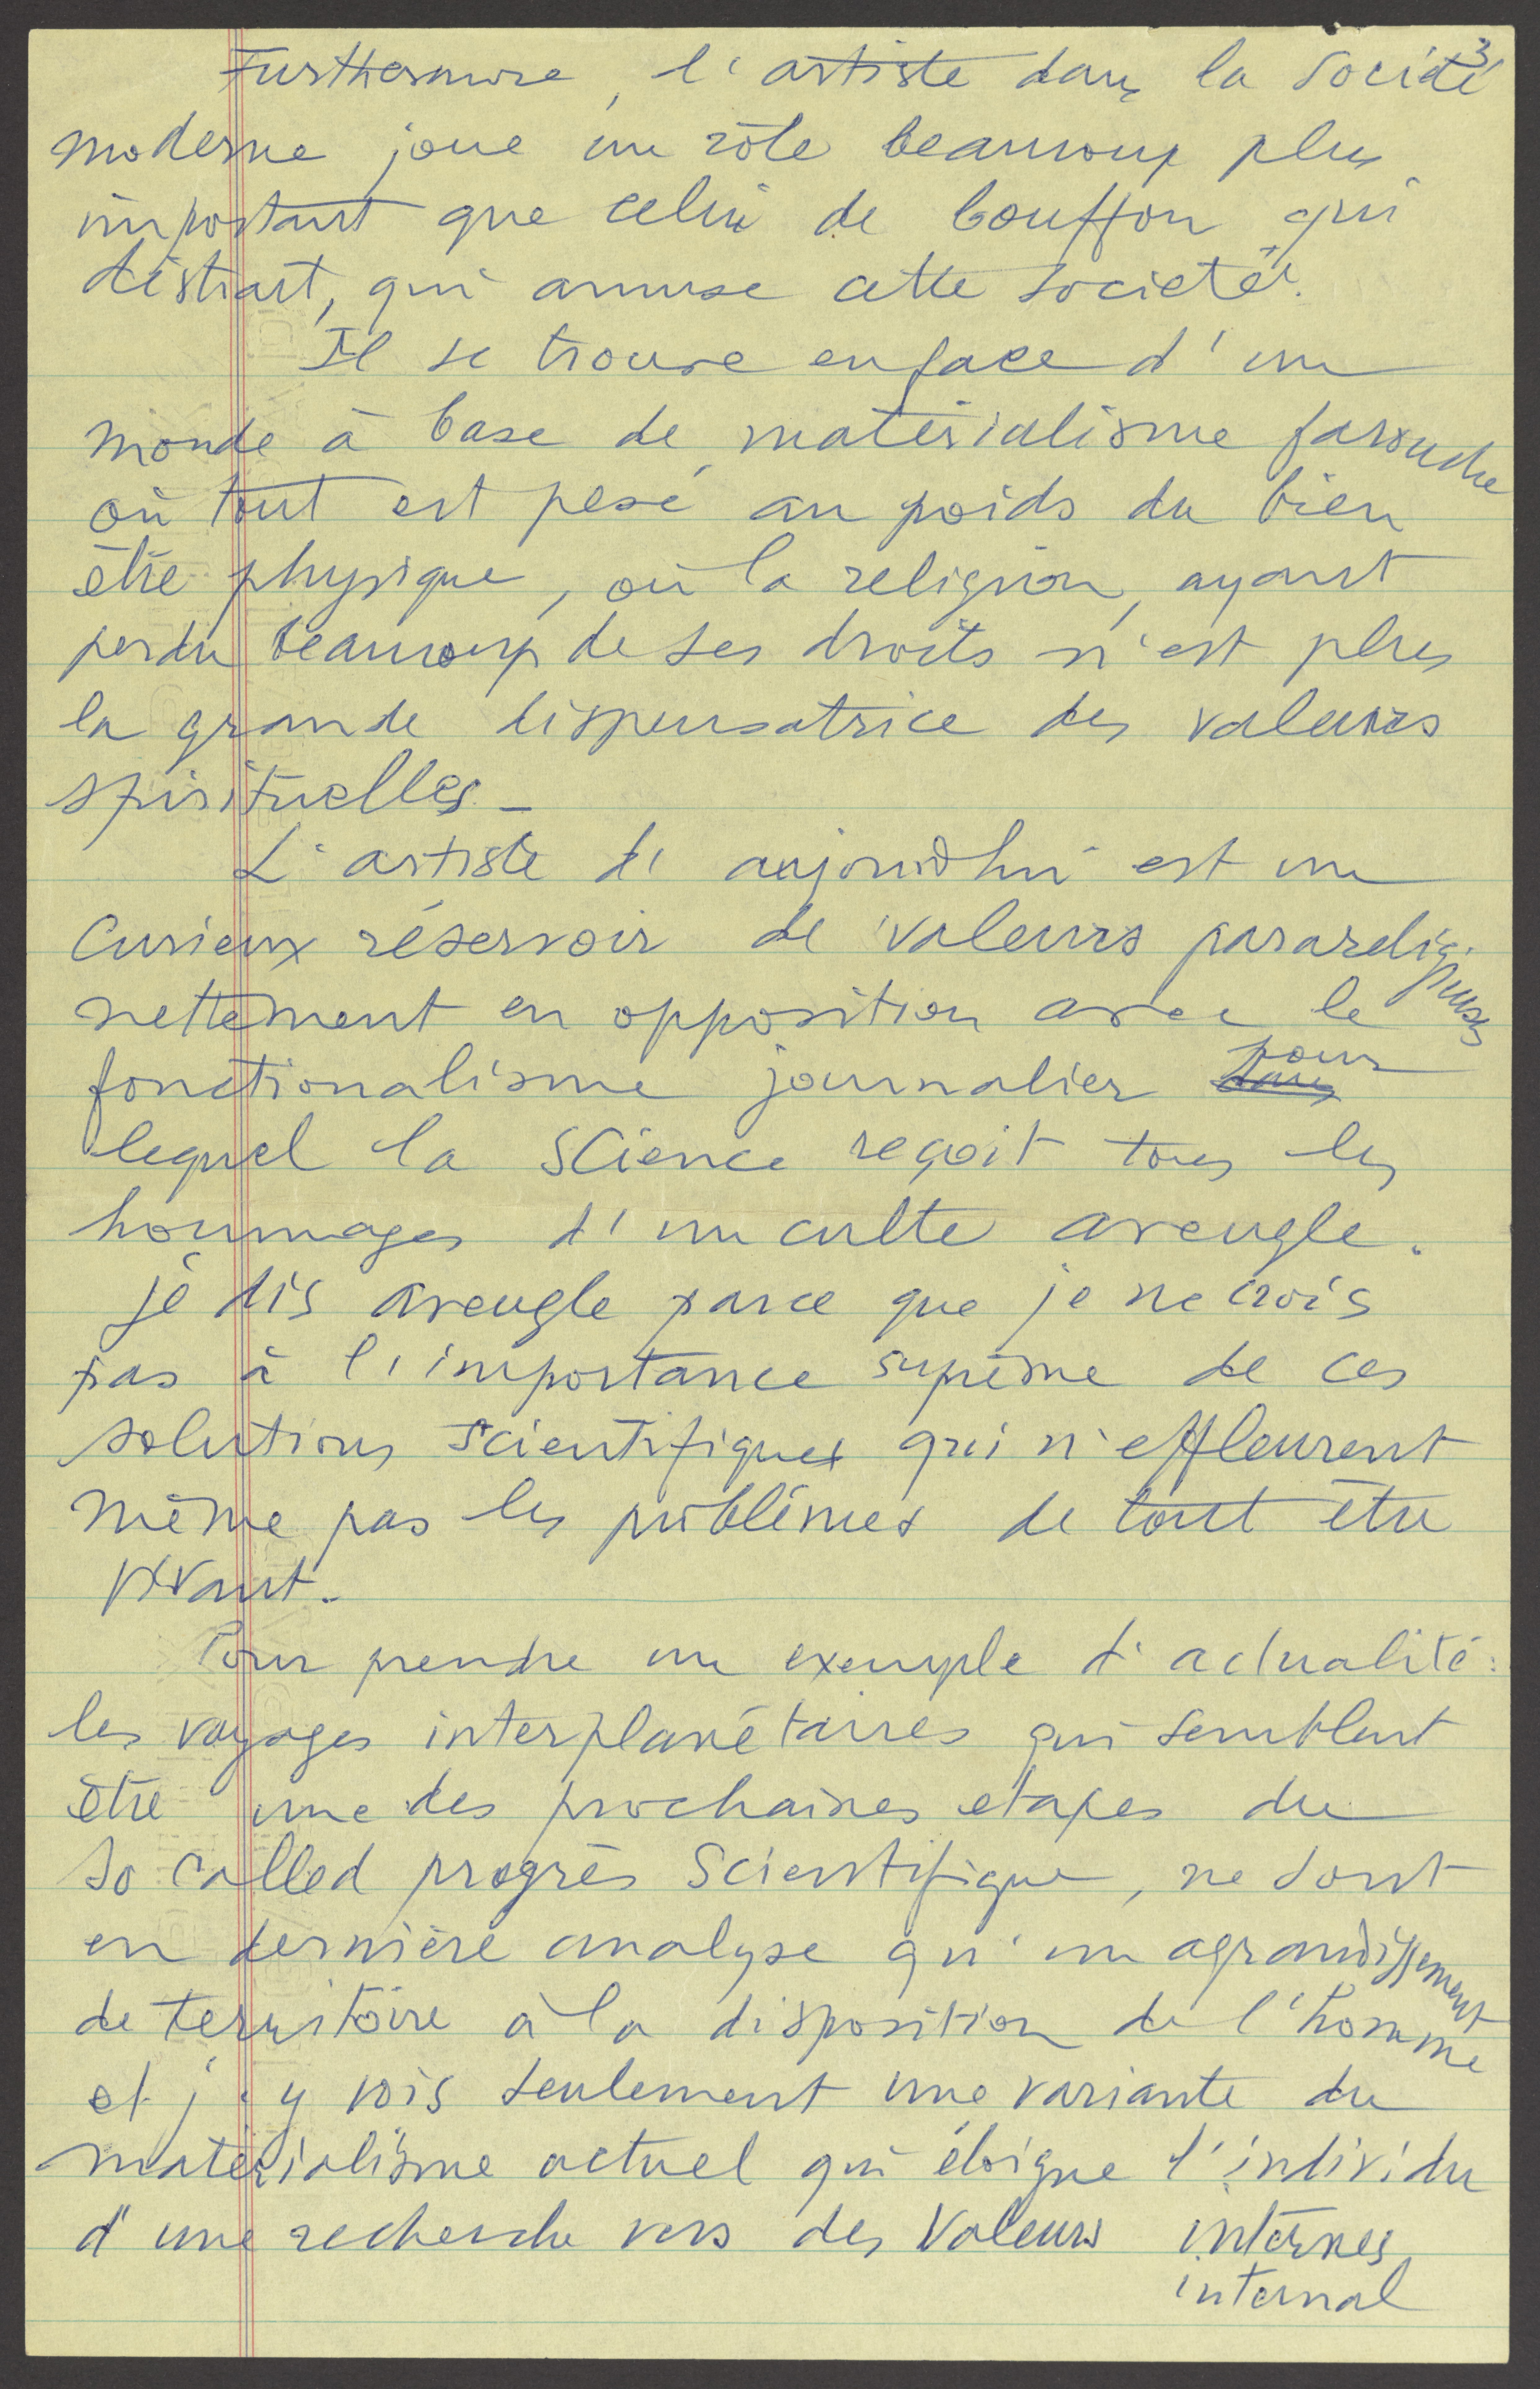 3
Furthermore, l'artiste dans la société
moderne joue un rôle beaucoup plus
important que celui de bouffon qui
distrait, qui amuse cette société.
Il se trouve en face d'un
monde à base de matérialisme farouche
où tout est pesé au poids du bien
être physique, où la religion, ayant
perdu beaucoup de ses droits n'est plus
la grande dispensatrice des valeurs
spirituelles_
L'artiste d'aujourd'hui est un
curieux réservoir de valeurs parareligieuses
nettement en opposition avec le
fonctionalisme journalier dans pour
lequel la Science reçoit tous les
hommages d'un culte aveugle.
je dis aveugle parce que je ne crois
pas à l'importance suprême de ces
solutions scientifiques qui n'effleurent
même pas les problèmes de tout être
vivant.
Pour prendre un exemple d'actualité:
les voyages interplanétaires qui semblent
être une des prochaines etapes du
so called progrès Scientifique, ne sont
en dernière analyse qu'un agrandissement
de territoire à la disposition de l'homme
et j'y vois seulement une variante du
matérialisme actuel qui éloigne l'individu
d'une recherche vers des Valeurs internes
internal